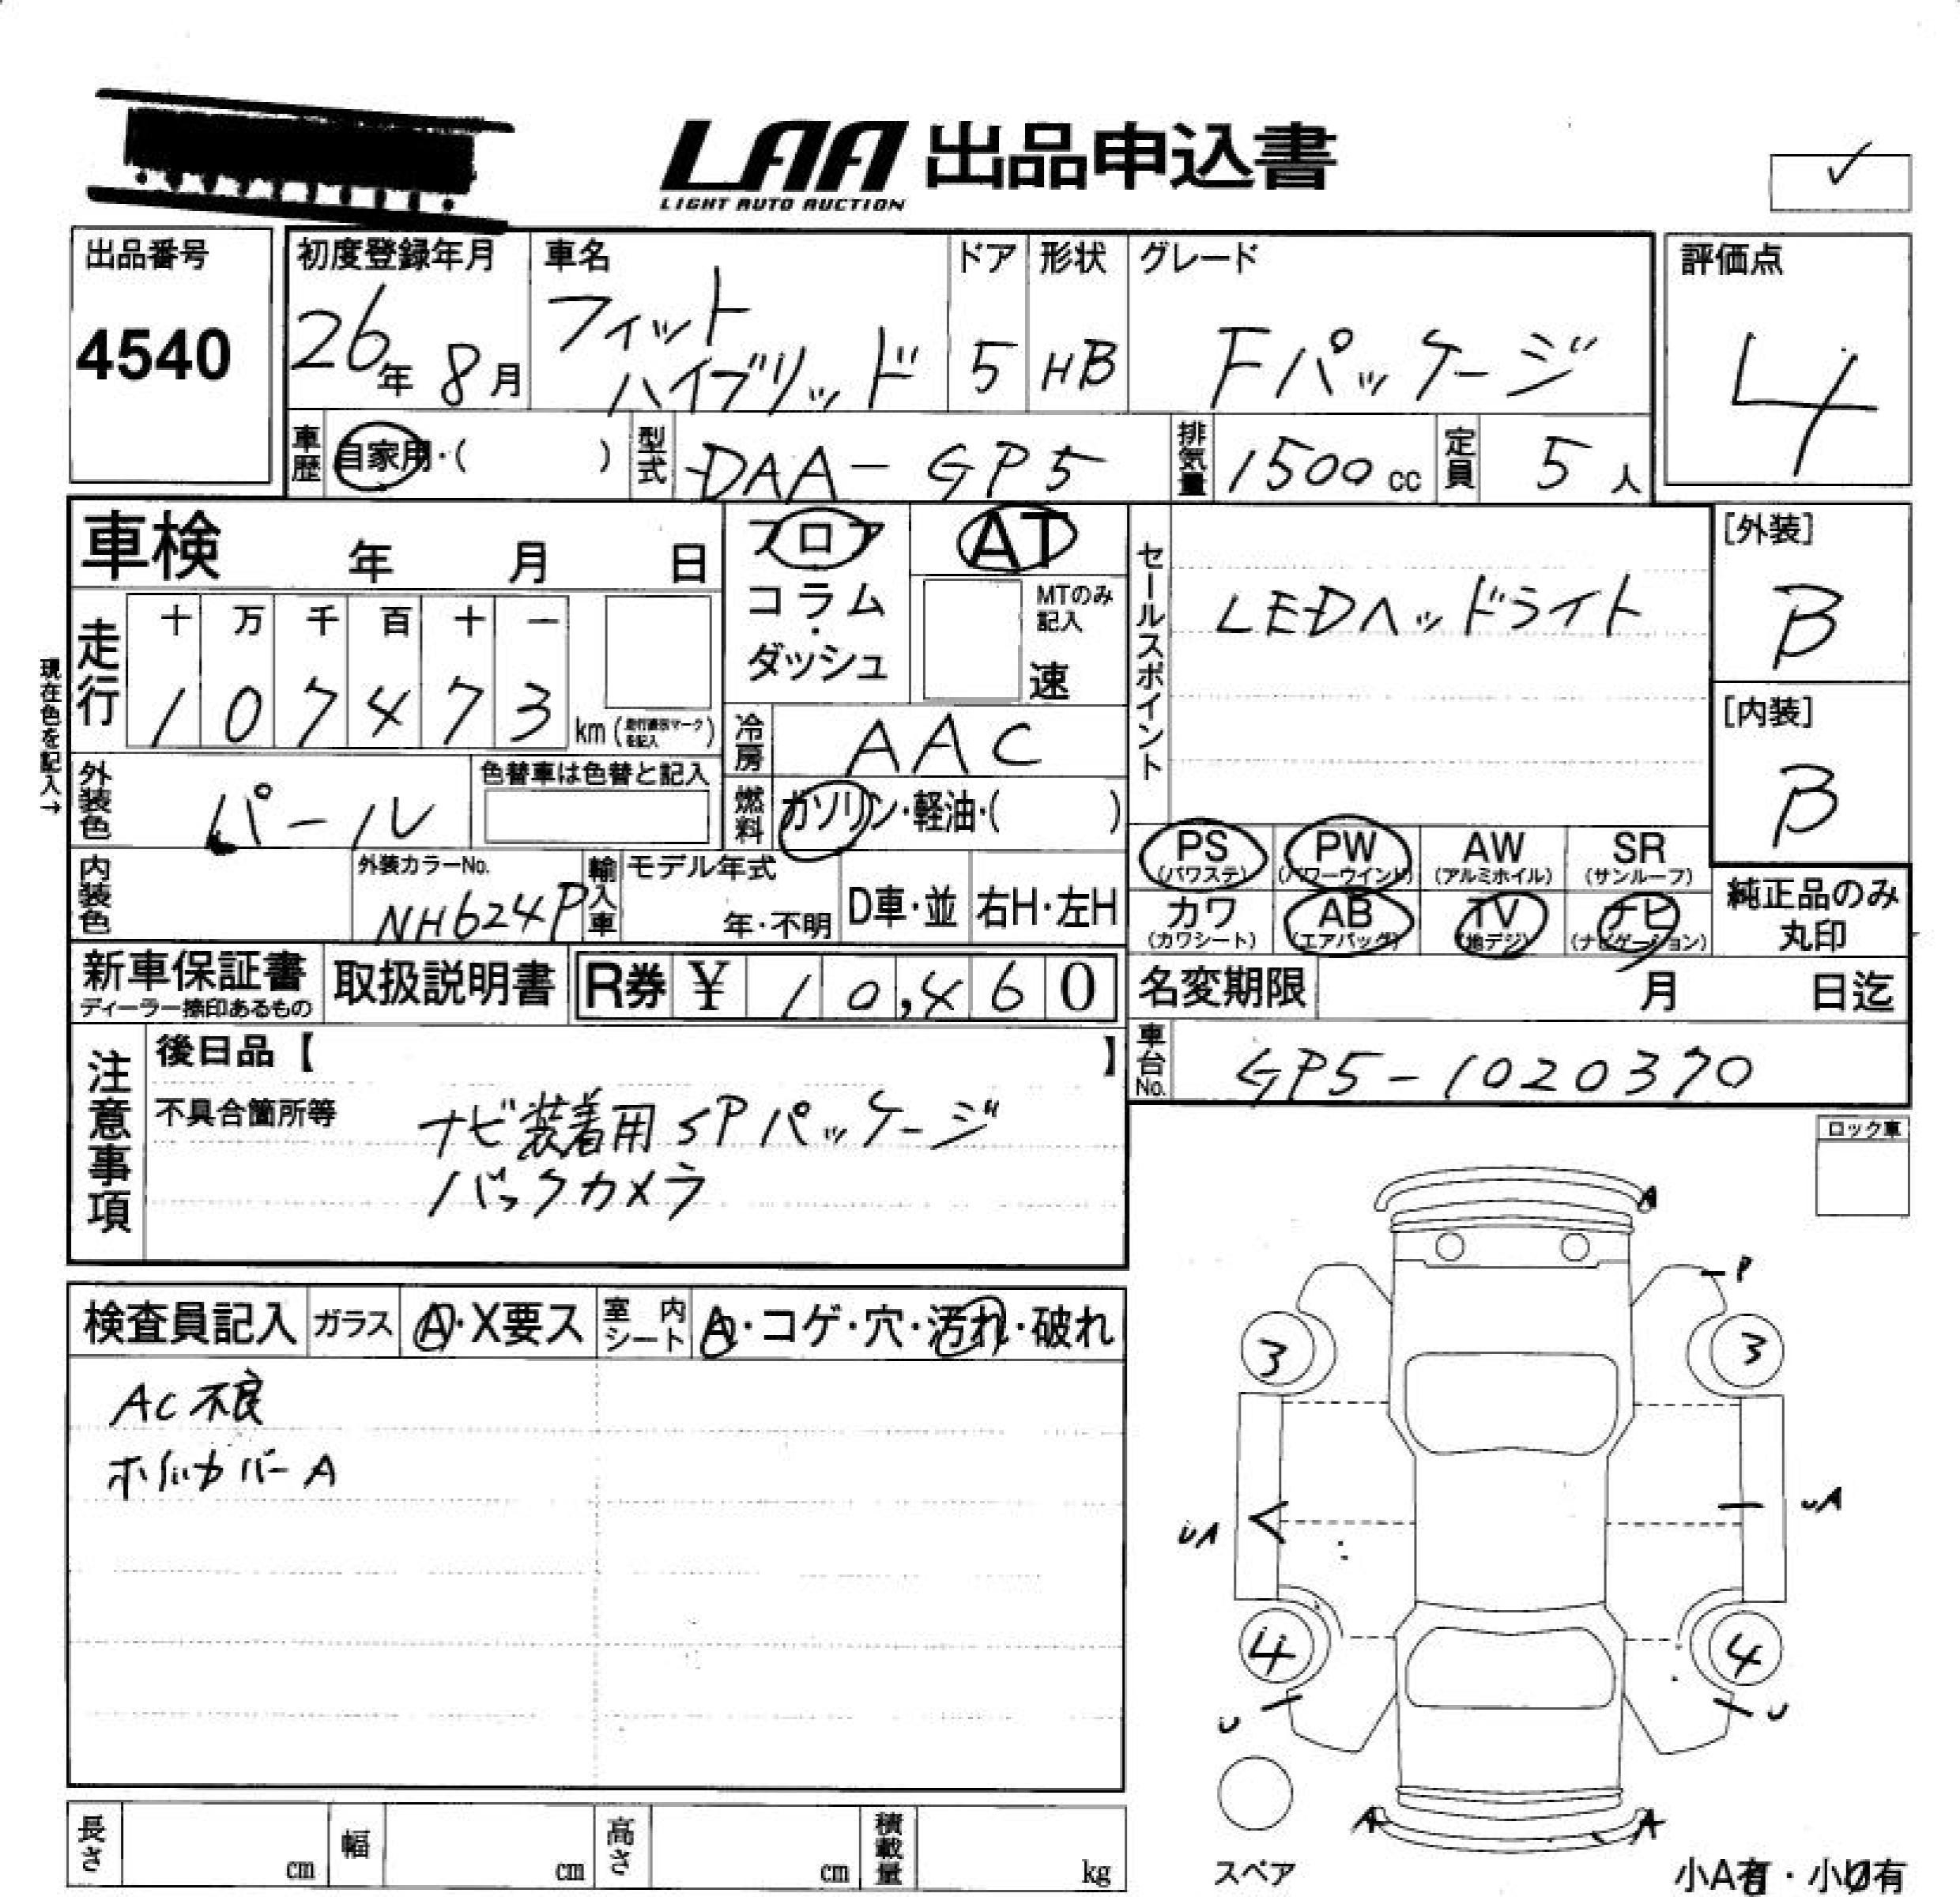 LAA 出品申込書
LIGHT AUTO AUCTION
✓
出品番号
4540
初度登録年月
26年 8月
車名
フィット
ハイブリッド
ドア
5
形状
HB
グレード
Fパッケージ
評価点
4
車歴 自家用・( )
型式 DAA-GP5
排気量 1500 cc
定員 5 人
車検 年 月 日
フロア
コラム
・
ダッシュ
AT
MTのみ
記入
速
セールスポイント
LEDヘッドライト
[外装]
B
[内装]
B
現在色を記入→
走行
十 万 千 百 十 一
1 0 7 4 7 3
km
冷房 AAC
外装色 パール
色替車は色替と記入
燃料 ガソリン・軽油・( )
内装色
外装カラーNo.
NH624P
輸入車
モデル年式
年・不明
D車・並
右H・左H
PS (パワステ)
PW (パワーウインド)
AW (アルミホイル)
SR (サンルーフ)
カワ (カワシート)
AB (エアバッグ)
TV (地デジ)
ナビ (ナビゲーション)
純正品のみ
丸印
新車保証書
ディーラー捺印あるもの
取扱説明書
R券 ¥ 10,460
名変期限 月 日迄
車台No. GP5-1020370
注意事項
後日品【 】
不具合箇所等
ナビ装着用SPパッケージ
バックカメラ
ロック車
検査員記入
ガラス A・X要ス
室内シート A・コゲ・穴・汚れ・破れ
AC不良
ホイルカバーA
A
P
3
3
UA
UA
4
4
U
U
A
A
スペア
小A有・小U有
長さ cm
幅 cm
高さ cm
積載量 kg